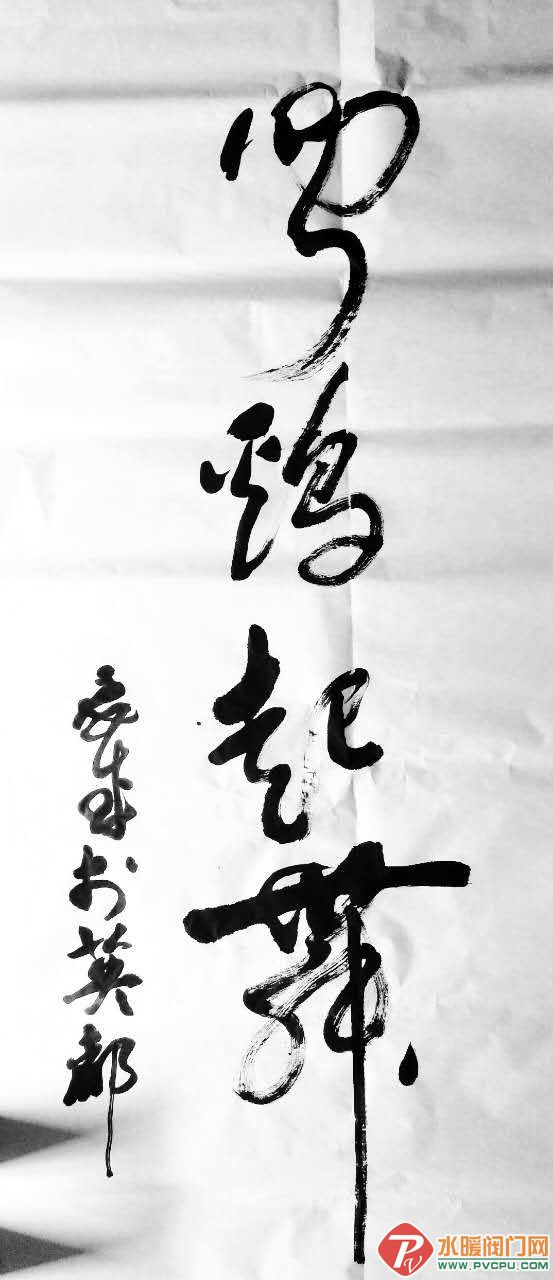 闻鸡起舞
於英都
水暖阀门网
WWW.PVCPU.COM